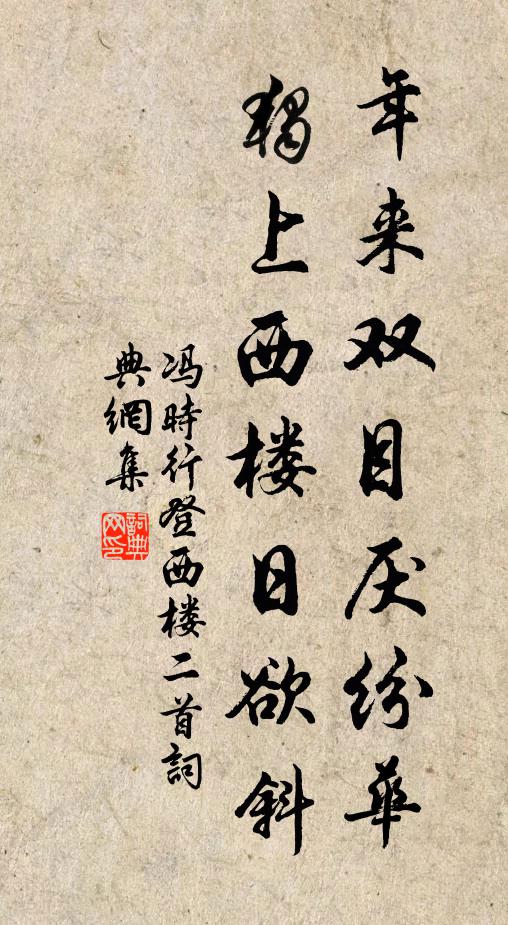 年来双目厌纷华
独上西楼日欲斜
冯時行登西楼二首詞
典網集
詞典网印